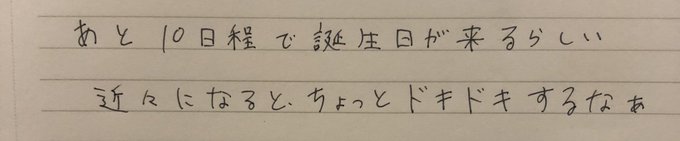 あと10日程で誕生日が来るらしい
近々になると、ちょっとドキドキするなぁ